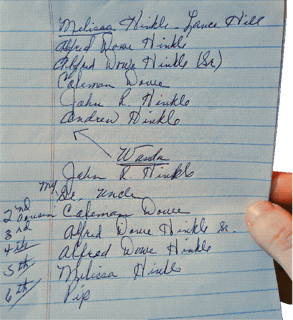 Melissa Hinkle - Lance Hill
Alfred Dowe Hinkle
Alfred Dowe Hinkle (Sr)
Coleman Dowe
John R. Hinkle
Andrew Hinkle
Wanda
My John R Hinkle
Gr. Uncle
2nd cousin Coleman Dowe
3rd Alfred Dowe Hinkle Sr.
4th Alfred Dowe Hinkle
5th Melissa Hinkle
6th Pip